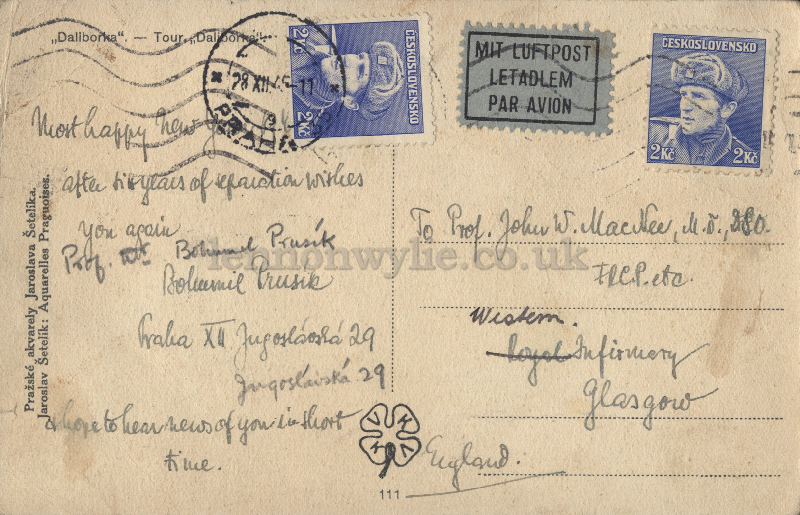 „Daliborka“. — Tour „Daliborka“.
28 XII 45-11
PRAHA
ČESKOSLOVENSKO
2Kč 2Kč
MIT LUFTPOST
LETADLEM
PAR AVION
ČESKOSLOVENSKO
2Kč 2Kč
Most happy New
after six years of separation wishes
you again
Prof. Dr. Bohumil Prusík
Bohumil Prusík
Praha XII Jugoslávská 29
Jugoslávská 29
& hope to hear news of you in short
time.
To Prof. John W. MacNee, M.D.,
F.R.C.P. etc.
Western.
Royal Infirmary
Glasgow
England.
Pražské akvarely Jaroslava Šetelíka.
Jaroslav Šetelík: Aquarelles Praguoises.
V K K V
111
lennonwylie.co.uk